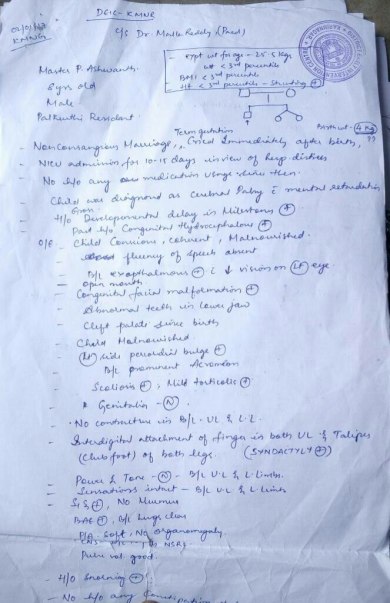 DEIC - KMNR
C/S Dr Malla Reddy (Paed)
Expt wt for age - 25.5 kgs
wt < 3rd percentile
BMI < 3rd percentile
Ht < 3rd percentile - Stunting +
Master P. Ashwanth
8 yrs old
Male
Resident
Term gestation
Birth wt - 4 kg
Nonconsangious Marriage, Cried Immediately after birth,
- NICU admission for 10-15 days in view of Resp distress
- No h/o any medication usage since then
- Child was diagnosed as Cerebral Palsy & mental retardation
- H/o Gross Developmental delay in Milestones +
Past h/o Congenital Hydrocephalous +
O/E - Child Concious, coherent, Malnourished.
fluency of speech absent
- B/L exopthalmous + & ↓ vision on Lt eye
- open mouth
- Congenital facial malformation +
- Abnormal teeth in lower jaw
- Cleft palate since birth
- Child Malnourished
- Lt side bulge +
B/L prominent
Scoliosis +, Mild torticolis +
Genitalia - N
- No contracture in B/L - UL & L.L
- Interdigital attachment of finger in both UL & Talipes
(Club foot) of both legs. (SYNDACTYLY +)
- Power & Tone - N - B/L U.L & L.Limbs.
- Sensations intact - B/L U.L & L.Limbs
- S1S2 +, No Murmur
BAE +, B/L lungs clear
P/A Soft, No organomegaly
CNS - NSRF
Pulse vol. good.
- H/O Snoring +
- No h/o any